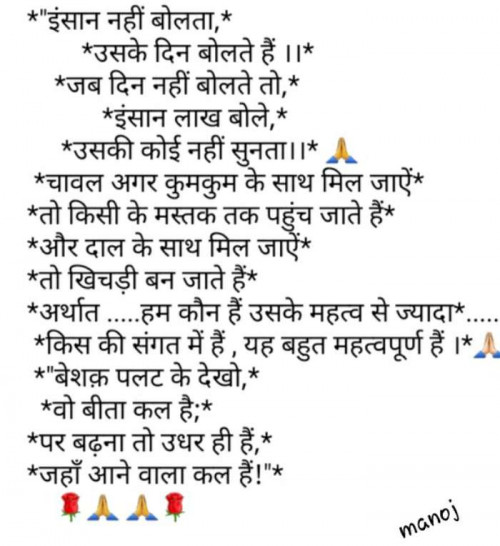 *"इंसान नहीं बोलता,*
*उसके दिन बोलते हैं ।।*
*जब दिन नहीं बोलते तो,*
*इंसान लाख बोले,*
*उसकी कोई नहीं सुनता।।* 🙏
*चावल अगर कुमकुम के साथ मिल जाऐं*
*तो किसी के मस्तक तक पहुंच जाते हैं*
*और दाल के साथ मिल जाऐं*
*तो खिचड़ी बन जाते हैं*
*अर्थात .....हम कौन हैं उसके महत्व से ज्यादा*.....
*किस की संगत में हैं , यह बहुत महत्वपूर्ण हैं ।*🙏
*"बेशक़ पलट के देखो,*
*वो बीता कल है;*
*पर बढ़ना तो उधर ही हैं,*
*जहाँ आने वाला कल हैं!"*
🌹🙏🙏🌹
manoj